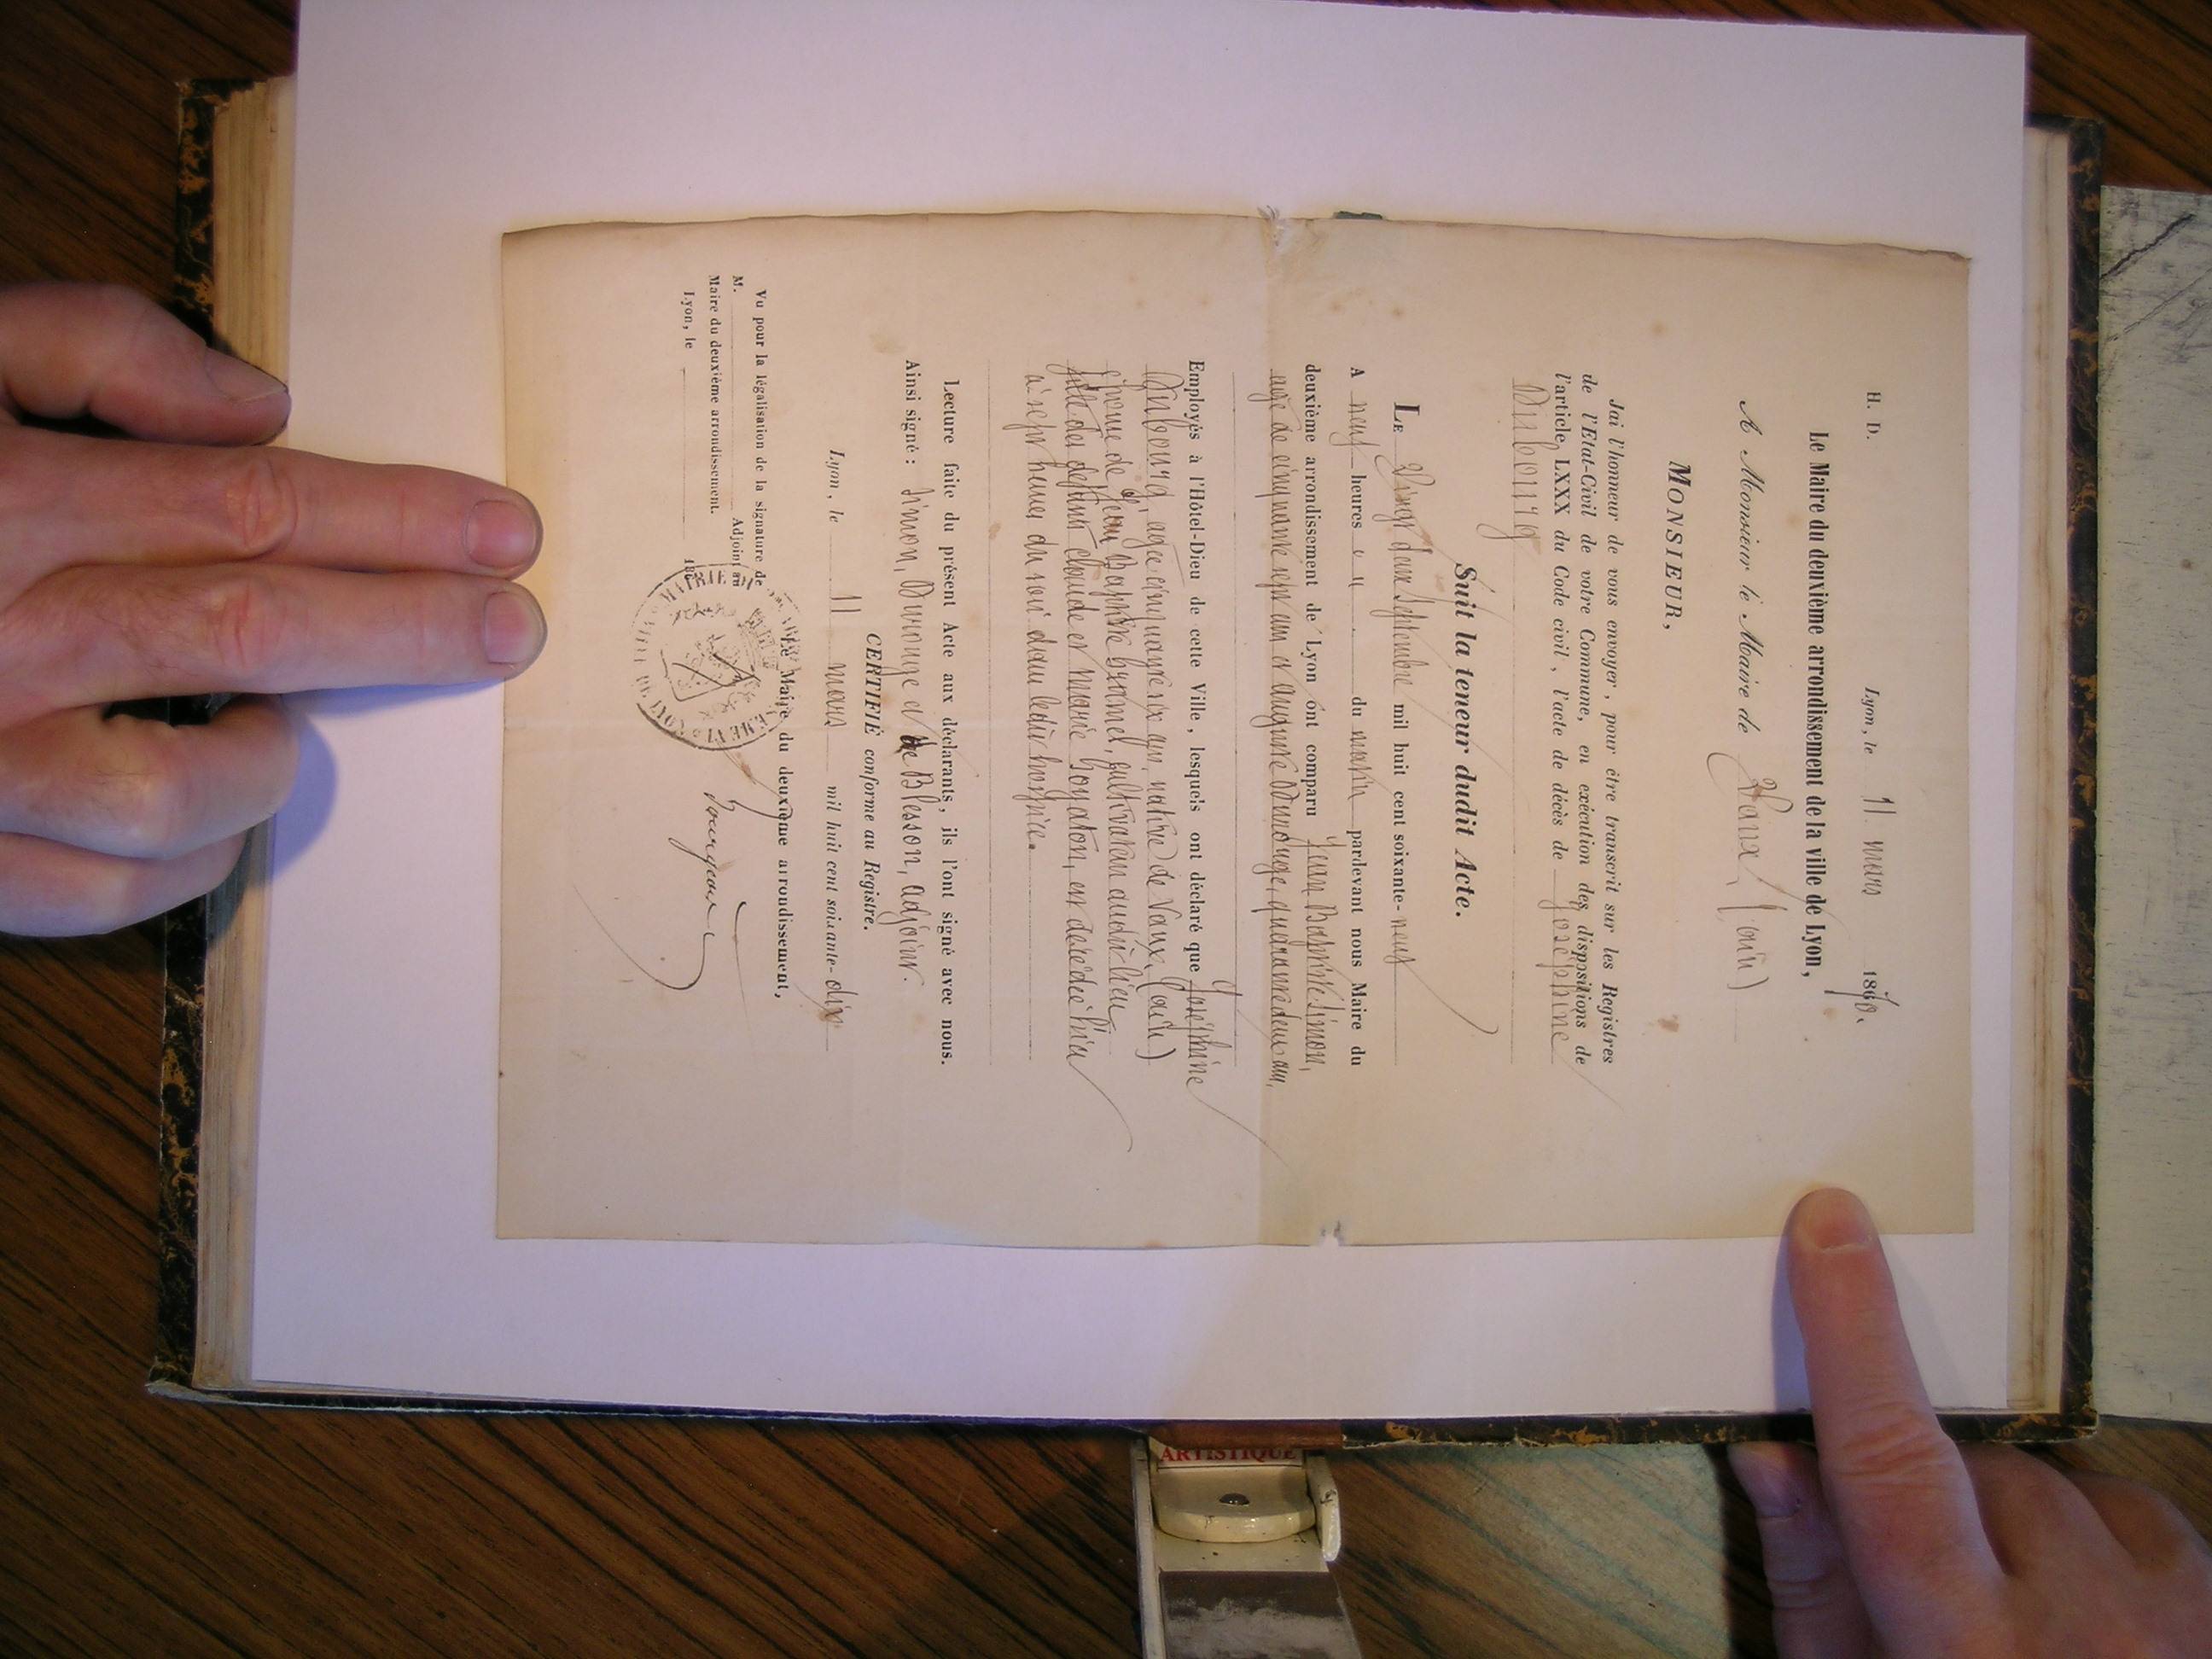 H. D.
Lyon, le 11 mars 1870.
Le Maire du deuxième arrondissement de la ville de Lyon,
A Monsieur le Maire de Vaux, (ain)
MONSIEUR,
J'ai l'honneur de vous envoyer, pour être transcrit sur les Registres
de l'Etat-Civil de votre Commune, en exécution des dispositions de
l'article LXXX du Code civil, l'acte de décès de Joséphine
Dubourg
Suit la teneur dudit Acte.
LE Vingt deux Septembre mil huit cent soixante-neuf
A neuf heures du matin pardevant nous Maire du
deuxième arrondissement de Lyon ont comparu Jean Baptiste Simon,
agé de cinquante sept ans et auguste Durouge, quarante deux ans,
Employés à l'Hôtel-Dieu de cette Ville, lesquels ont déclaré que Joséphine
Dubourg, agée cinquante six ans, native de Vaux, (ain)
épouse de Jean Baptiste cultivateur audit lieu,
fille des défunts claude et marie est décédée hier
à sept heures du soir dans ledit hospice.
Lecture faite du présent Acte aux déclarants, ils l'ont signé avec nous.
Ainsi signé : Simon, Durouge et de Blesson, adjoint.
CERTIFIÉ conforme au Registre.
Lyon, le 11 mars mil huit cent soixante-dix
Le Maire du deuxième arrondissement,
Vu pour la légalisation de la signature de
M. Adjoint au
Maire du deuxième arrondissement.
Lyon, le 186
MAIRIE DU
ARTISTIQUE